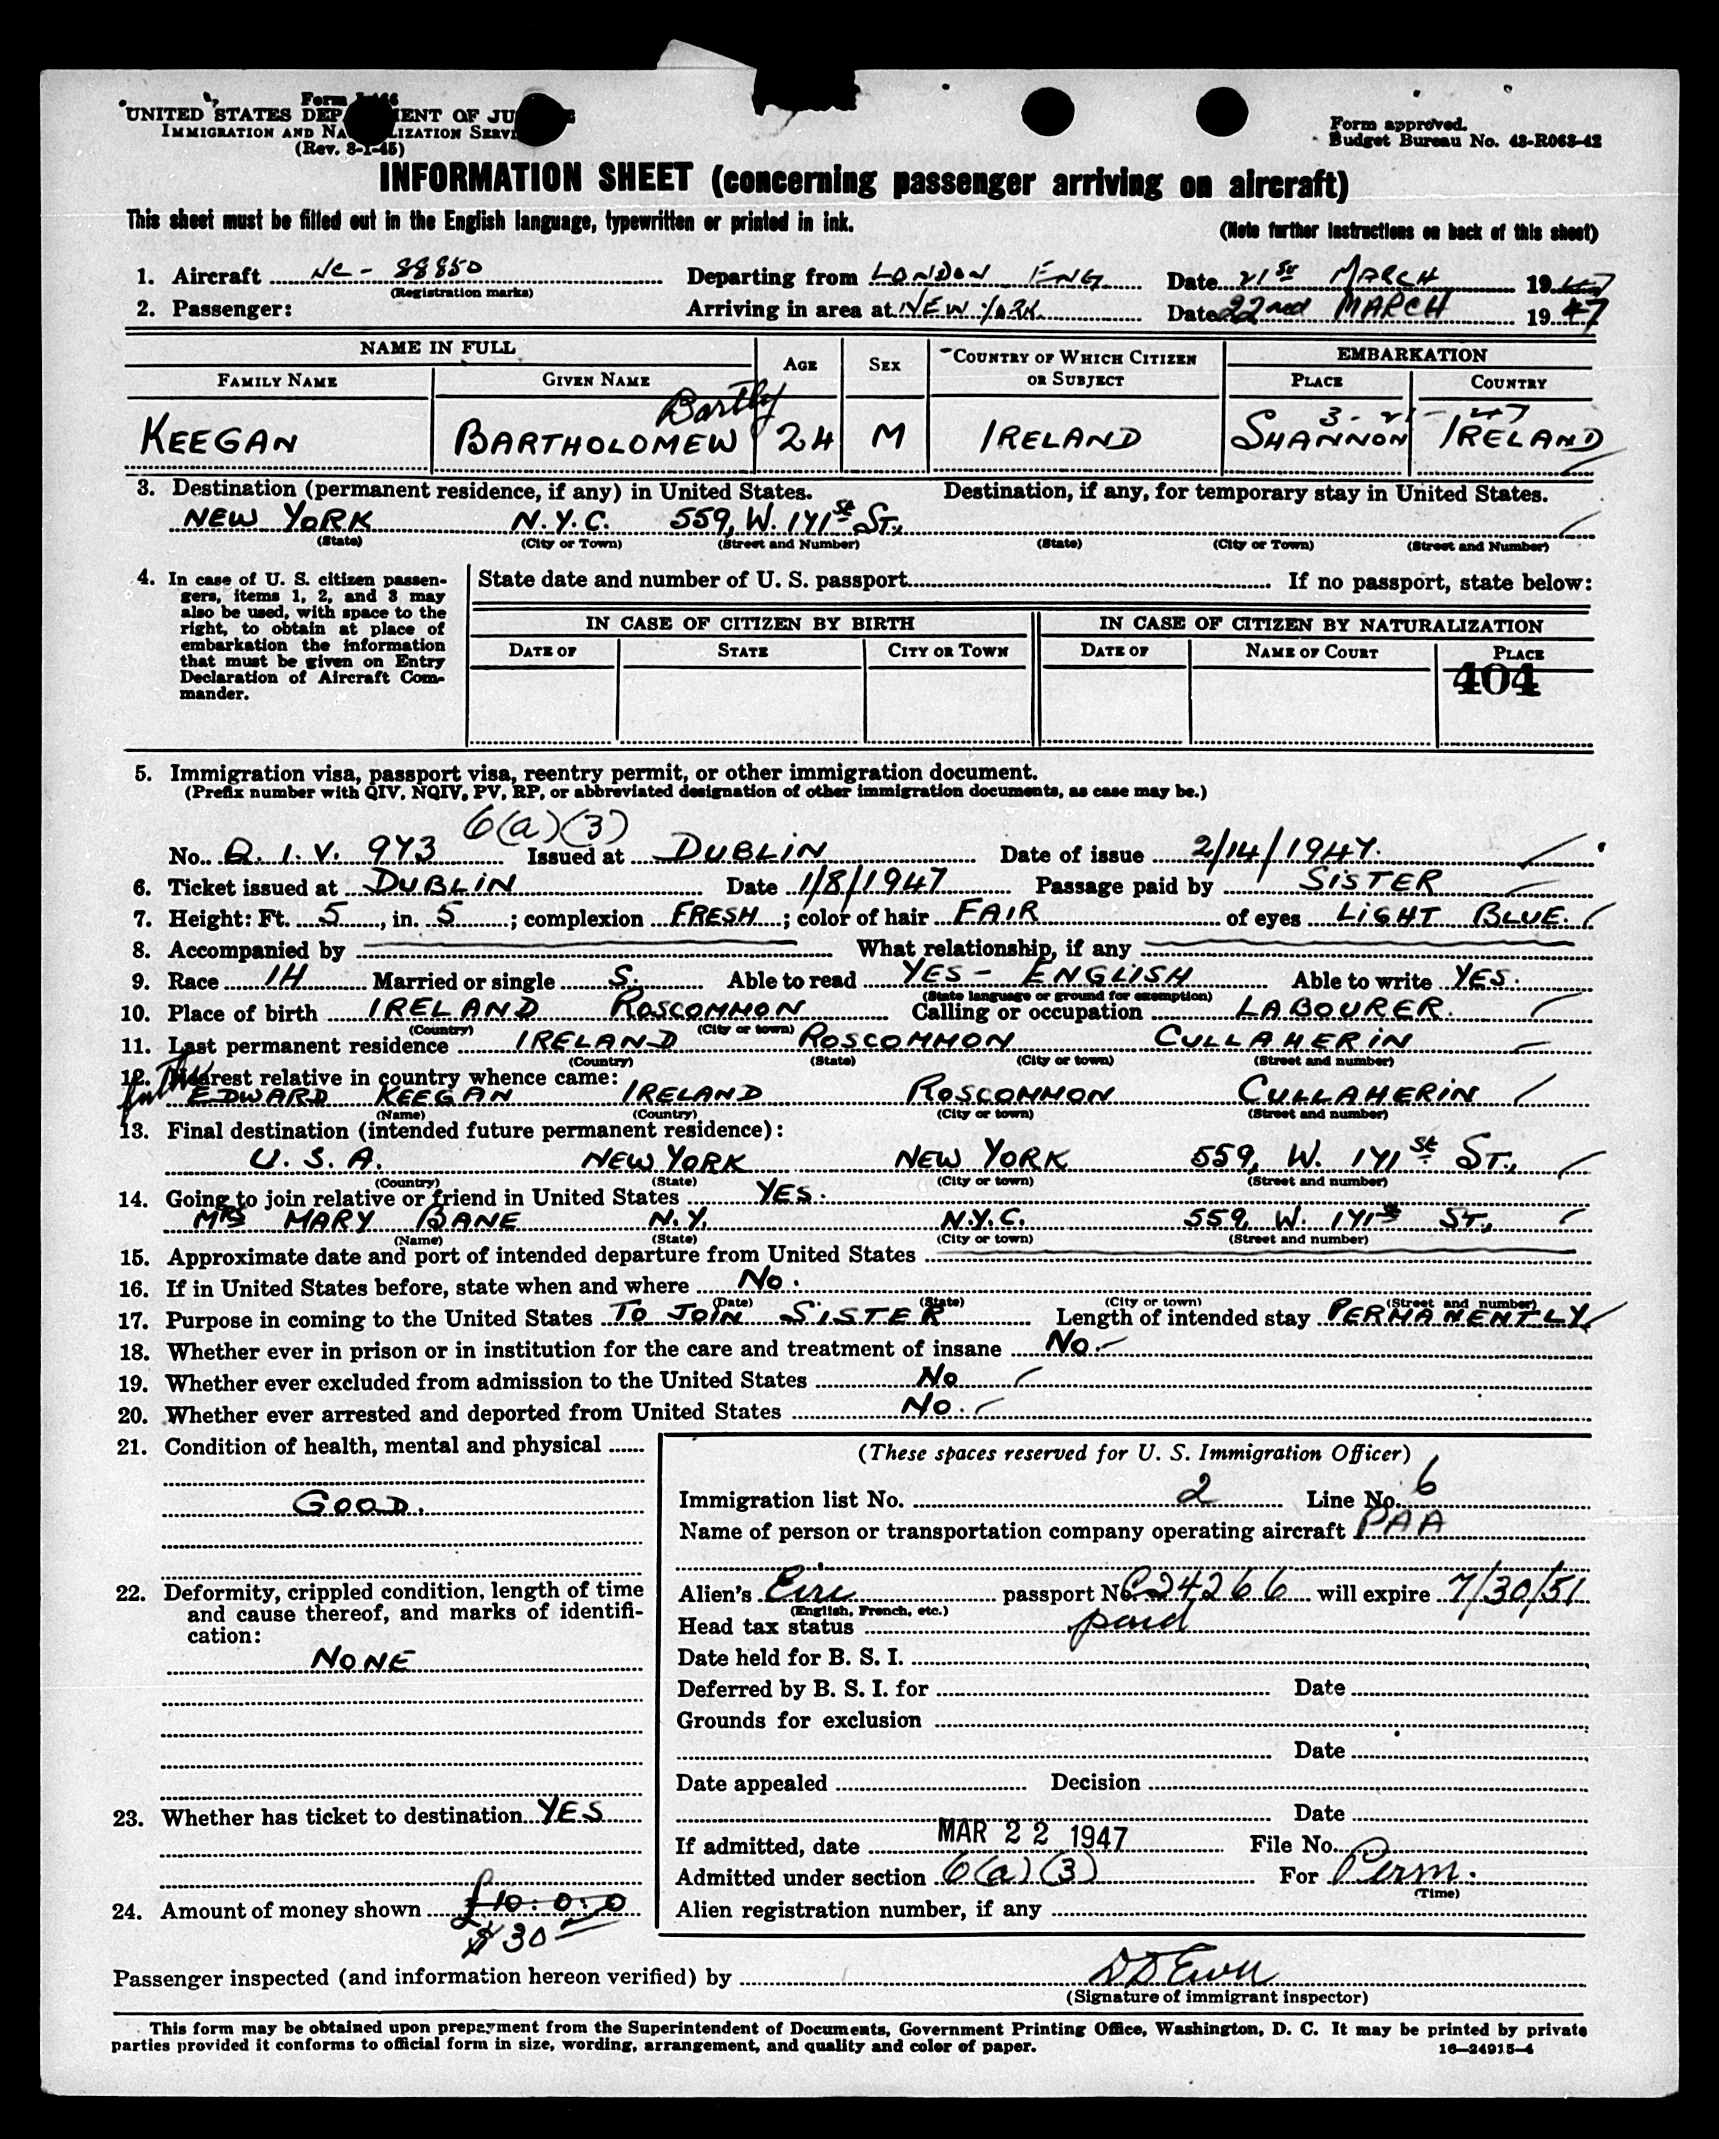 Form I-466
UNITED STATES DEPARTMENT OF JUSTICE
IMMIGRATION AND NATURALIZATION SERVICE
(Rev. 8-1-45)
Form approved.
Budget Bureau No. 43-R063-42
INFORMATION SHEET (concerning passenger arriving on aircraft)
This sheet must be filled out in the English language, typewritten or printed in ink.
(Note further instructions on back of this sheet)
1. Aircraft NC - 88850 Departing from LONDON ENG Date 21st MARCH 1947
(Registration marks)
2. Passenger: Arriving in area at NEW YORK Date 22nd MARCH 1947
NAME IN FULL AGE SEX COUNTRY OF WHICH CITIZEN OR SUBJECT EMBARKATION
FAMILY NAME GIVEN NAME PLACE COUNTRY
Bartly 3-21-47
KEEGAN BARTHOLOMEW 24 M IRELAND SHANNON IRELAND
3. Destination (permanent residence, if any) in United States. Destination, if any, for temporary stay in United States.
NEW YORK N.Y.C. 559, W. 171st ST.,
(State) (City or Town) (Street and Number) (State) (City or Town) (Street and Number)
4. In case of U. S. citizen passen-
gers, items 1, 2, and 3 may
also be used, with space to the
right, to obtain at place of
embarkation the information
that must be given on Entry
Declaration of Aircraft Com-
mander.
State date and number of U. S. passport If no passport, state below:
IN CASE OF CITIZEN BY BIRTH IN CASE OF CITIZEN BY NATURALIZATION
DATE OF STATE CITY OR TOWN DATE OF NAME OF COURT PLACE
404
5. Immigration visa, passport visa, reentry permit, or other immigration document.
(Prefix number with QIV, NQIV, PV, RP, or abbreviated designation of other immigration documents, as case may be.)
6(a)(3)
No. Q.I.V. 973 Issued at DUBLIN Date of issue 2/14/1947.
6. Ticket issued at DUBLIN Date 1/8/1947 Passage paid by SISTER
7. Height: Ft. 5, in. 5; complexion FRESH; color of hair FAIR of eyes LIGHT BLUE.
8. Accompanied by What relationship, if any
9. Race IH Married or single S. Able to read YES - ENGLISH Able to write YES.
(State language or ground for exemption)
10. Place of birth IRELAND ROSCOMMON Calling or occupation LABOURER.
(Country) (City or town)
11. Last permanent residence IRELAND ROSCOMMON CULLAHERIN
(Country) (State) (City or town) (Street and number)
12. Nearest relative in country whence came:
father EDWARD KEEGAN IRELAND ROSCOMMON CULLAHERIN
(Name) (Country) (City or town) (Street and number)
13. Final destination (intended future permanent residence):
U.S.A. NEW YORK NEW YORK 559, W. 171st ST.,
(Country) (State) (City or town) (Street and number)
14. Going to join relative or friend in United States YES.
MRS MARY BANE N.Y. N.Y.C. 559, W. 171st ST.,
(Name) (State) (City or town) (Street and number)
15. Approximate date and port of intended departure from United States
16. If in United States before, state when and where No.
(Date) (State) (City or town) (Street and number)
17. Purpose in coming to the United States TO JOIN SISTER Length of intended stay PERMANENTLY
18. Whether ever in prison or in institution for the care and treatment of insane No.
19. Whether ever excluded from admission to the United States No
20. Whether ever arrested and deported from United States No.
21. Condition of health, mental and physical
GOOD.
22. Deformity, crippled condition, length of time
and cause thereof, and marks of identifi-
cation:
NONE
23. Whether has ticket to destination YES
24. Amount of money shown £10:0:0
$30
(These spaces reserved for U. S. Immigration Officer)
Immigration list No. 2 Line No. 6
Name of person or transportation company operating aircraft PAA
Alien's Eire passport No. C24266 will expire 7/30/51
(English, French, etc.)
Head tax status paid
Date held for B. S. I.
Deferred by B. S. I. for Date
Grounds for exclusion
Date
Date appealed Decision
Date
If admitted, date MAR 22 1947 File No.
Admitted under section 6(a)(3) For Perm.
(Time)
Alien registration number, if any
Passenger inspected (and information hereon verified) by
(Signature of immigrant inspector)
This form may be obtained upon prepayment from the Superintendent of Documents, Government Printing Office, Washington, D. C. It may be printed by private
parties provided it conforms to official form in size, wording, arrangement, and quality and color of paper.
16—24915-4